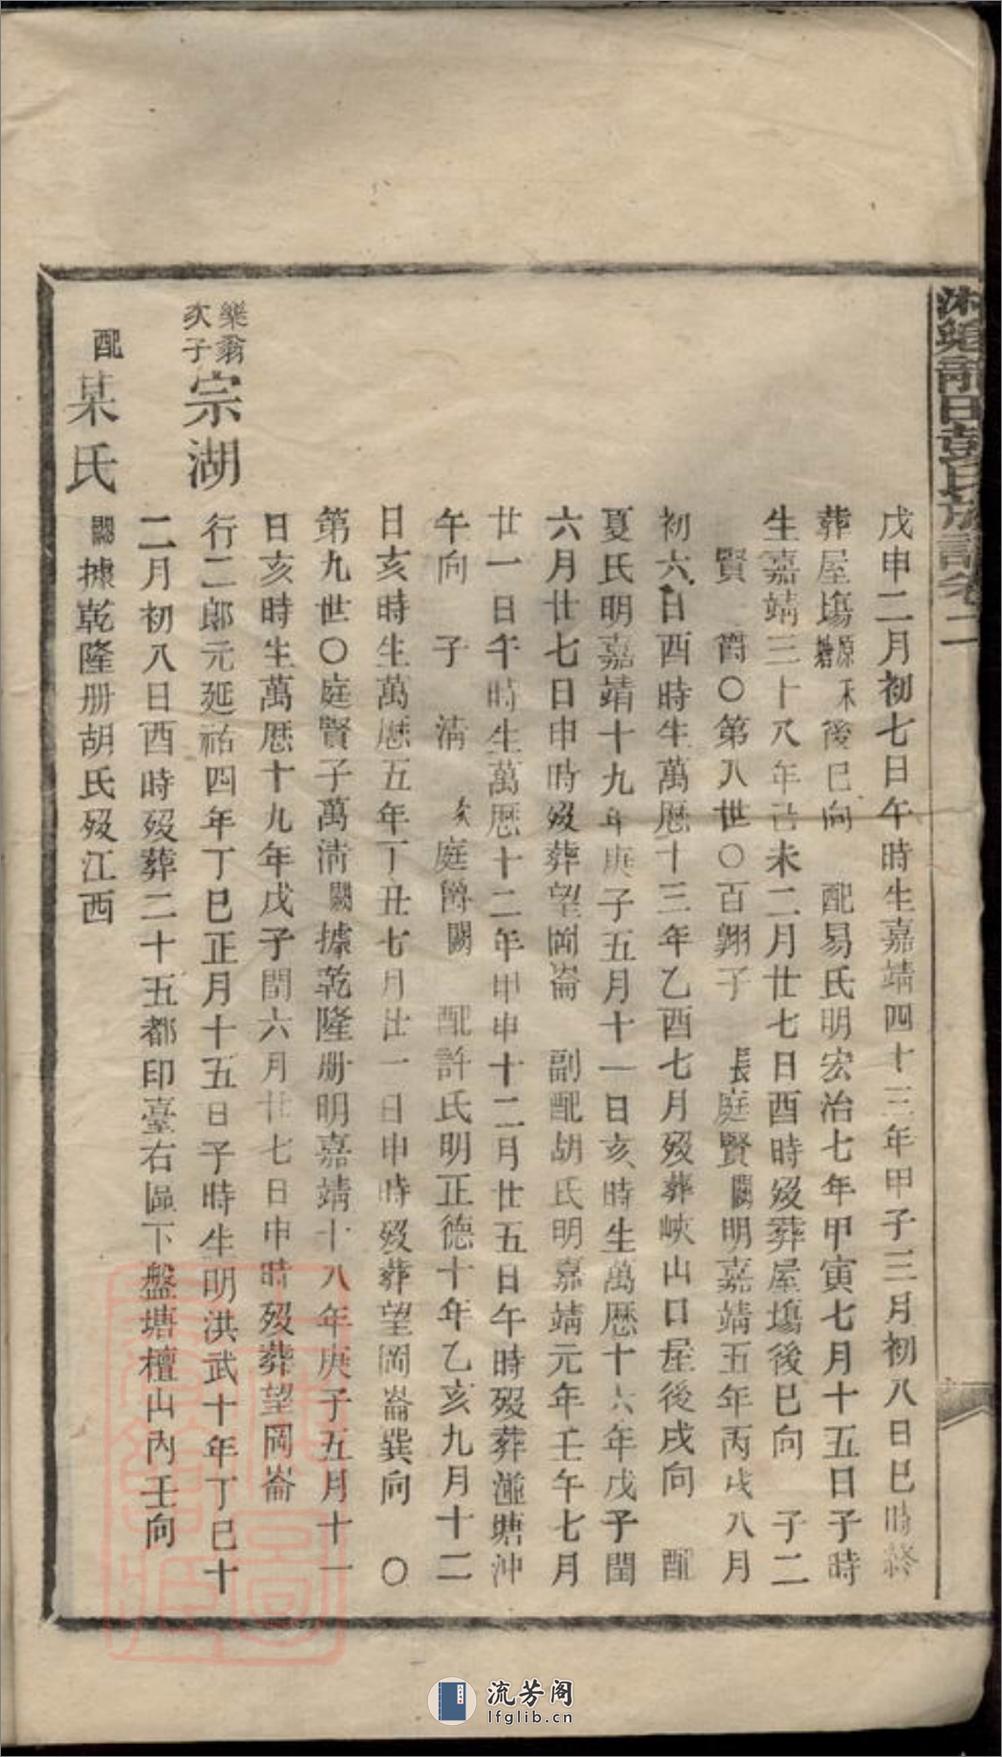 戊申二月初七日午時生嘉靖四十三年甲子三月初八日巳時終
葬屋塲後巳向　配易氏明宏治七年甲寅七月十五日子時
生嘉靖三十八年己未二月廿七日酉時歿葬屋塲後巳向　子二
賢　爵〇第八世〇百翔子　長庭賢闕明嘉靖五年丙戌八月
初六日酉時生萬厯十三年乙酉七月歿葬峽山口屋後戌向　配
夏氏明嘉靖十九年庚子五月十一日亥時生萬厯十六年戊子閏
六月廿七日申時歿葬望岡崙　副配胡氏明嘉靖元年壬午七月
廿一日午時生萬厯十二年甲申十二月廿五日午時歿葬塘沖
午向　子　淸　次庭爵闕　配許氏明正德十年乙亥九月十二
日亥時生萬厯五年丁丑七月廿一日申時歿葬望岡崙巽向　〇
第九世〇庭賢子萬淸闕據乾隆册明嘉靖十八年庚子五月十一
日亥時生萬厯十九年戊子閏六月廿七日申時歿葬望岡崙
樂翁次子宗湖 行二郞元延祐四年丁巳正月十五日子時生明洪武十年丁巳十
二月初八日酉時歿葬二十五都印臺右區下盤塘檀山內壬向
配某氏 闕據乾隆册胡氏歿江西
流芳阁
lfglib.cn